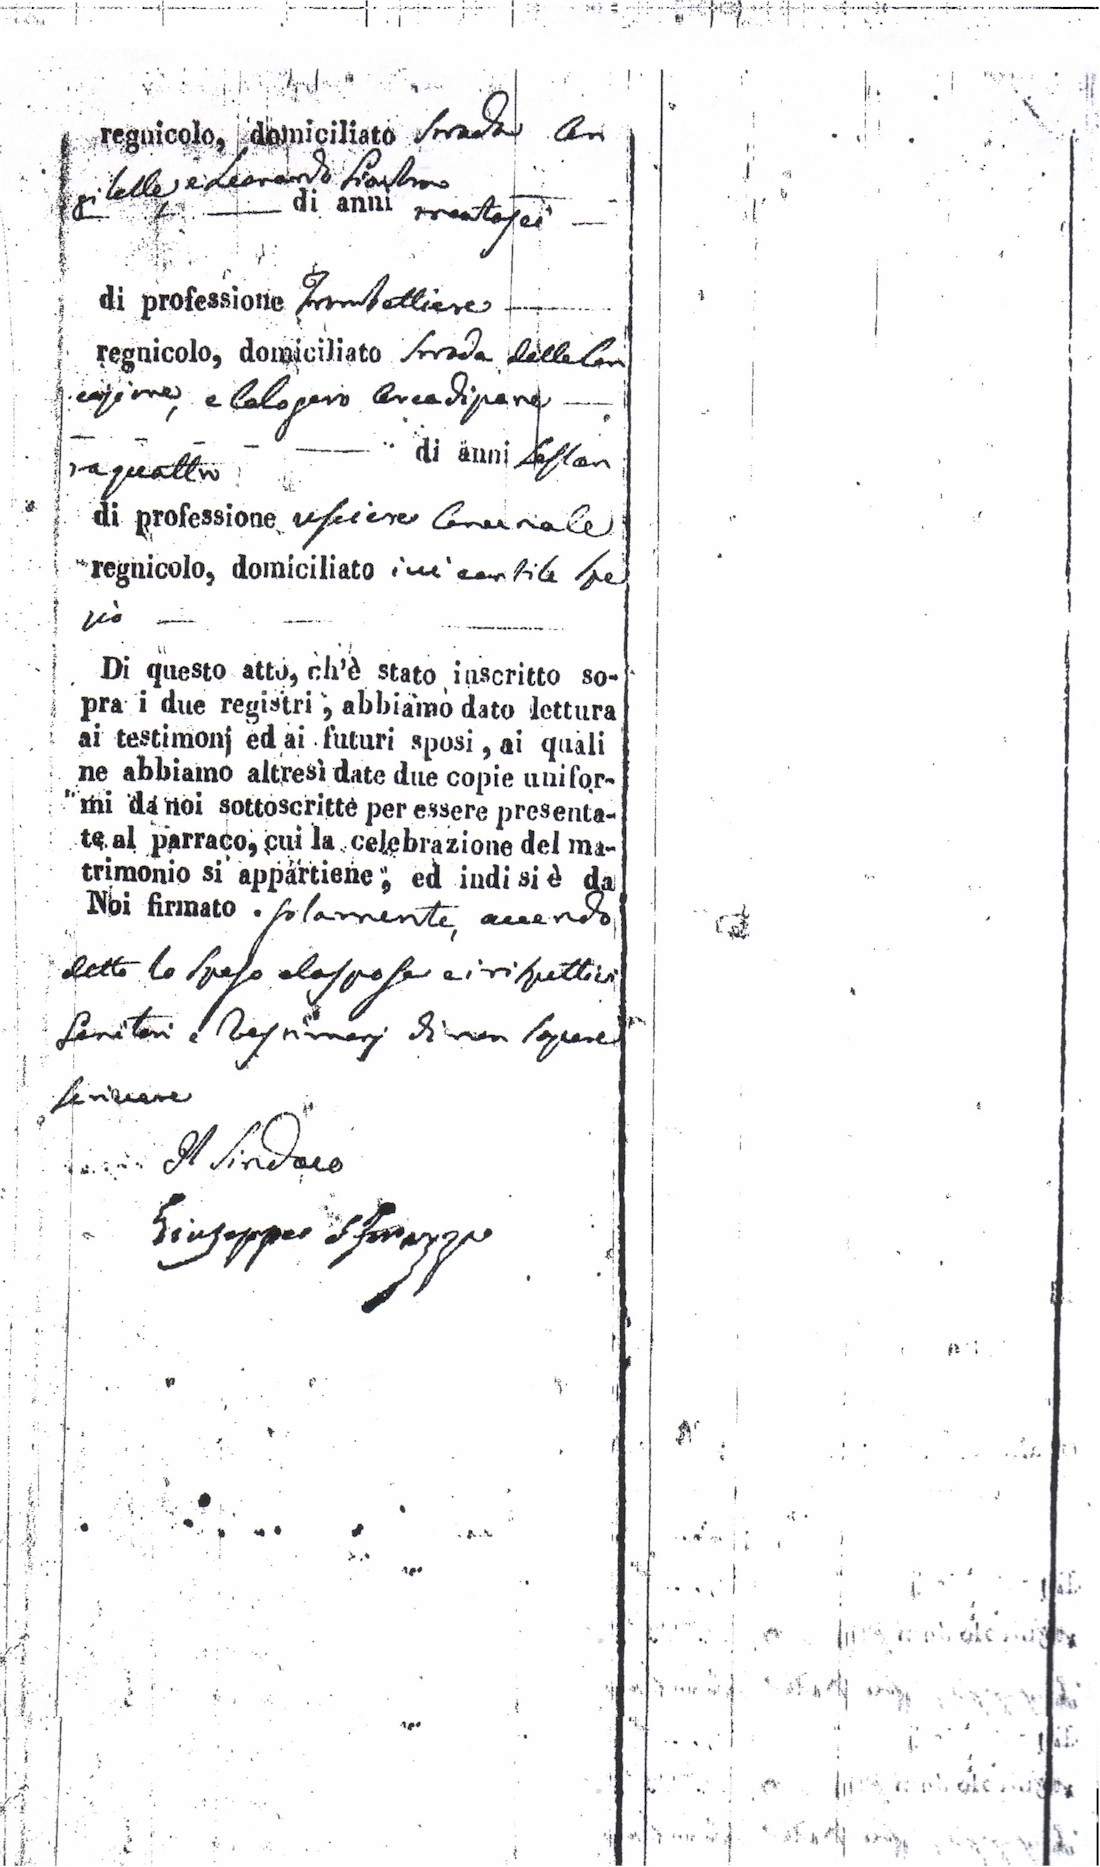 regnicolo, domiciliato Strada Can
gitelle, e Leonardo
di anni trentasei
di professione Trombettiere
regnicolo, domiciliato Strada della Con
cezione, e Calogero Arcadipane
di anni Sessan
taquattro
di professione usciere Comunale
regnicolo, domiciliato ivi cortile Spe
Di questo atto, ch'è stato inscritto so-
pra i due registri, abbiamo dato lettura
ai testimonj ed ai futuri sposi, ai quali
ne abbiamo altresì date due copie unifor-
mi da noi sottoscritte per essere presenta-
te al parraco, cui la celebrazione del ma-
trimonio si appartiene; ed indi si è da
Noi firmato solamente, avendo
detto lo sposo e la sposa e i rispettivi
Genitori e Testimonj di non sapere
scrivere
Il Sindaco
Giuseppe Sferrazza